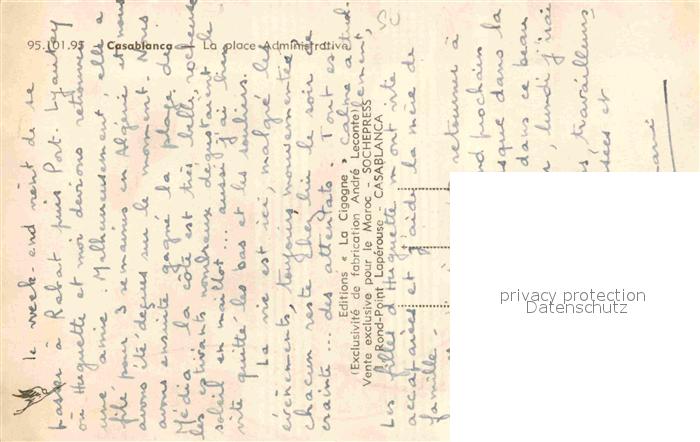 95.101.95 - Casablanca - La place Administrative
Le week-end vient de se
passer à Rabat puis Port-Lyautey
où Huguette et moi devions retrouver
une amie. Malheureusement, elle a
filé pour 3 semaines en Algérie et nous
avons été déçues sur le moment. Nous
avons ensuite gagné la plage de
Média la côte est très belle, rocheuse
les estivants nombreux dégustaient le
soleil en maillot... aussi j'ai bien
vite quitté les bas et les souliers.
La vie est ici, malgré les
événements, toujours mouvementée
chacun reste chez lui le soir de
crainte... des attentats. Tout est
calme
Editions « La Cigogne »
(Exclusivité de fabrication André Leconte)
Vente exclusive pour le Maroc - SOCHEPRESS
Rond-Point Lapérouse - CASABLANCA
Les filles d'Huguette m'ont vite
accaparées et j'aide la mère de
famille.
retourner à
prochain
dans ce beau
lundi j'irai
travailleurs
et
privacy protection
Datenschutz